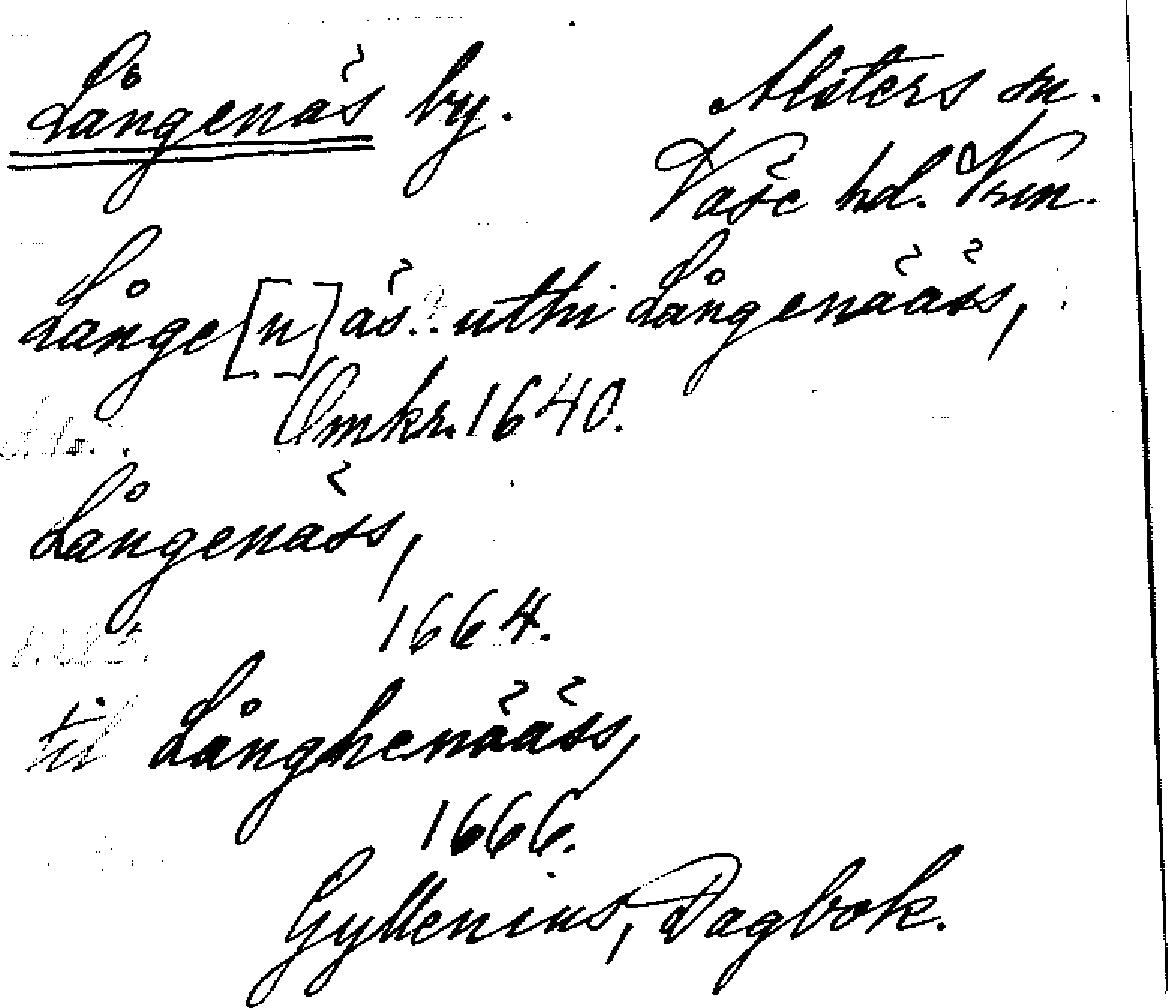 Långenäs by. Alsters sn.
Väse hd. Vrm.
Långe[n]äs.. uthi Långenääss,
Omkr. 1640.
Långenäss,
1664.
til Långhenääss,
1666.
Gyllenius, Dagbok.